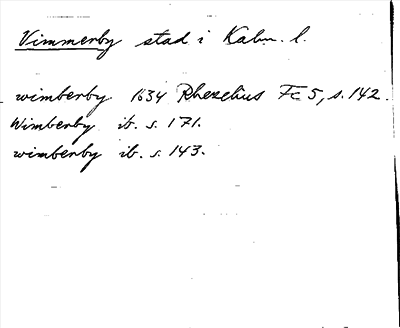 Vimmerby stad i Kalm. l.
wimberby 1634 Rhezelius Fc 5, s. 142.
Wimberby ib. s. 171.
wimberby ib. s. 143.